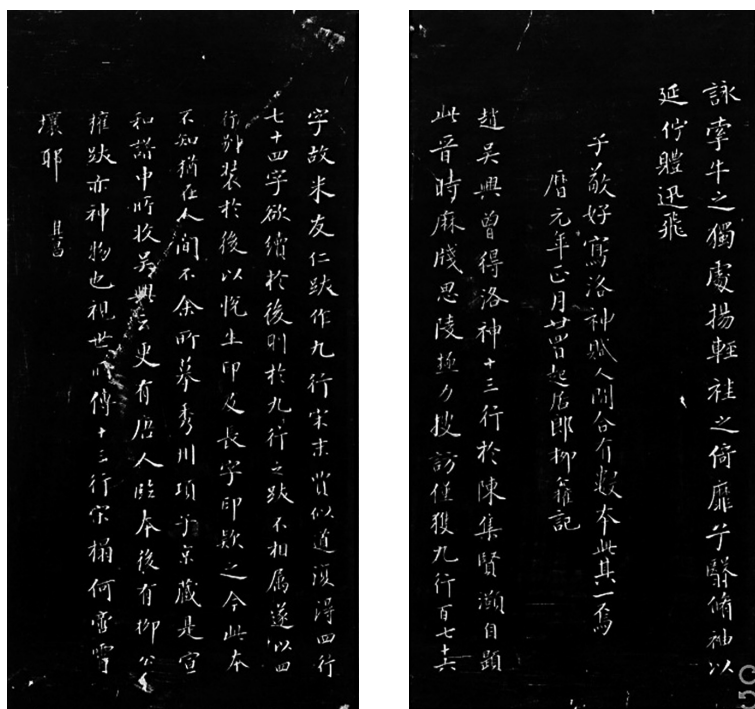 詠牽牛之獨處揚輕袿之倚靡兮翳脩袖以
延佇體迅飛
子敬好寫洛神賦人間合有數本此其一焉
曆元年正月廿四日起居郎柳權記
趙吳興曾得洛神十三行於陳集賢灝自題
此晉時麻牋思陵極力搜訪僅獲九行百七十六
字故米友仁跋作九行宋末賈似道復得四行
七十四字欲續於後則於九行之跋不相屬遂以四
行別裝於後以悅生印及長字印款之今此本
不知猶在人間不余所摹秀州項子京藏是宣
和譜中所收吳興云更有唐人臨本後有柳公
權跋亦神物也視世所傳十三行宋搨何啻霄
壤耶 其昌